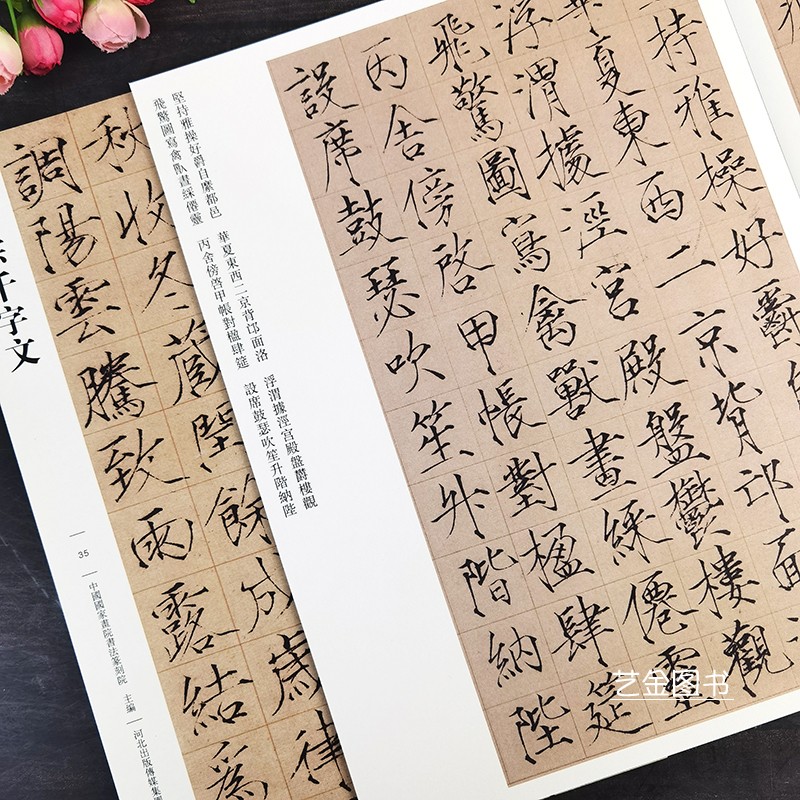 持雅操好爵
華夏東西二京背邙面
浮渭據涇宮殿盤鬱樓觀
飛驚圖寫禽獸畫綵僊靈
丙舍傍啓甲帳對楹肆筵
設席鼓瑟吹笙升階納陛
堅持雅操好爵自縻都邑 華夏東西二京背邙面洛 浮渭據涇宮殿盤鬱樓觀
飛驚圖寫禽獸畫綵僊靈 丙舍傍啓甲帳對楹肆筵 設席鼓瑟吹笙升階納陛
秋收冬藏閏餘成歲律
調陽雲騰致雨露結爲
千字文
35
中國國家畫院書法篆刻院 主編
河北出版傳媒集團
艺金图书